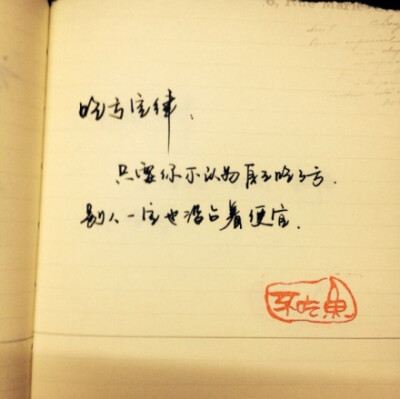 吃亏定律、
只要你不认为自己吃了亏.
别人一定也没占着便宜.
不吃鱼